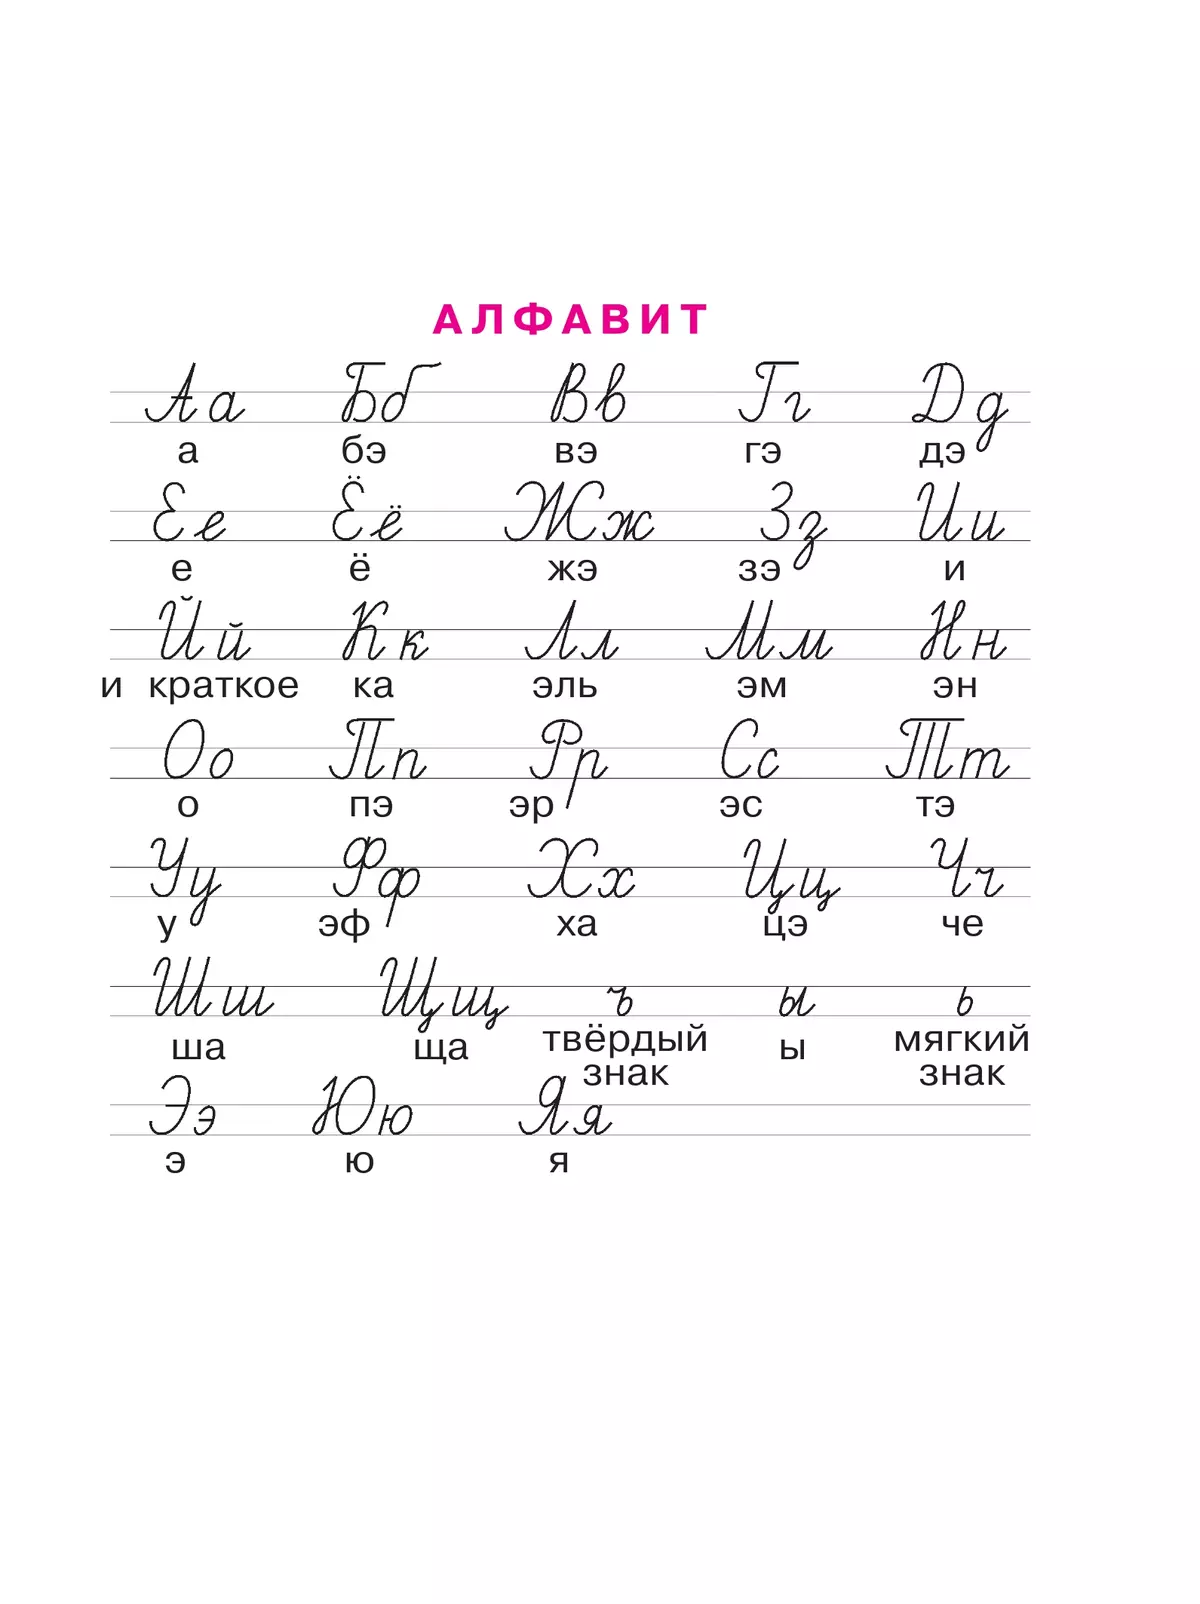 АЛФАВИТ
Аа Бб Вв Гг Дд
а бэ вэ гэ дэ
Ее Ёё Жж Зз Ии
е ё жэ зэ и
Йй Кк Лл Мм Нн
и краткое ка эль эм эн
Оо Пп Рр Сс Тт
о пэ эр эс тэ
Уу Фф Хх Цц Чч
у эф ха цэ че
Шш Щщ ъ ы ь
ша ща твёрдый ы мягкий
знак знак
Ээ Юю Яя
э ю я